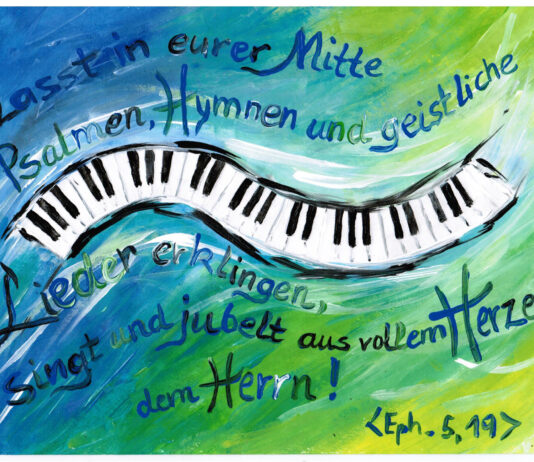 Lasst in eurer Mitte
Psalmen, Hymnen und geistliche
Lieder erklingen,
singt und jubelt aus vollem Herze
dem Herrn!
<Eph. 5,19>